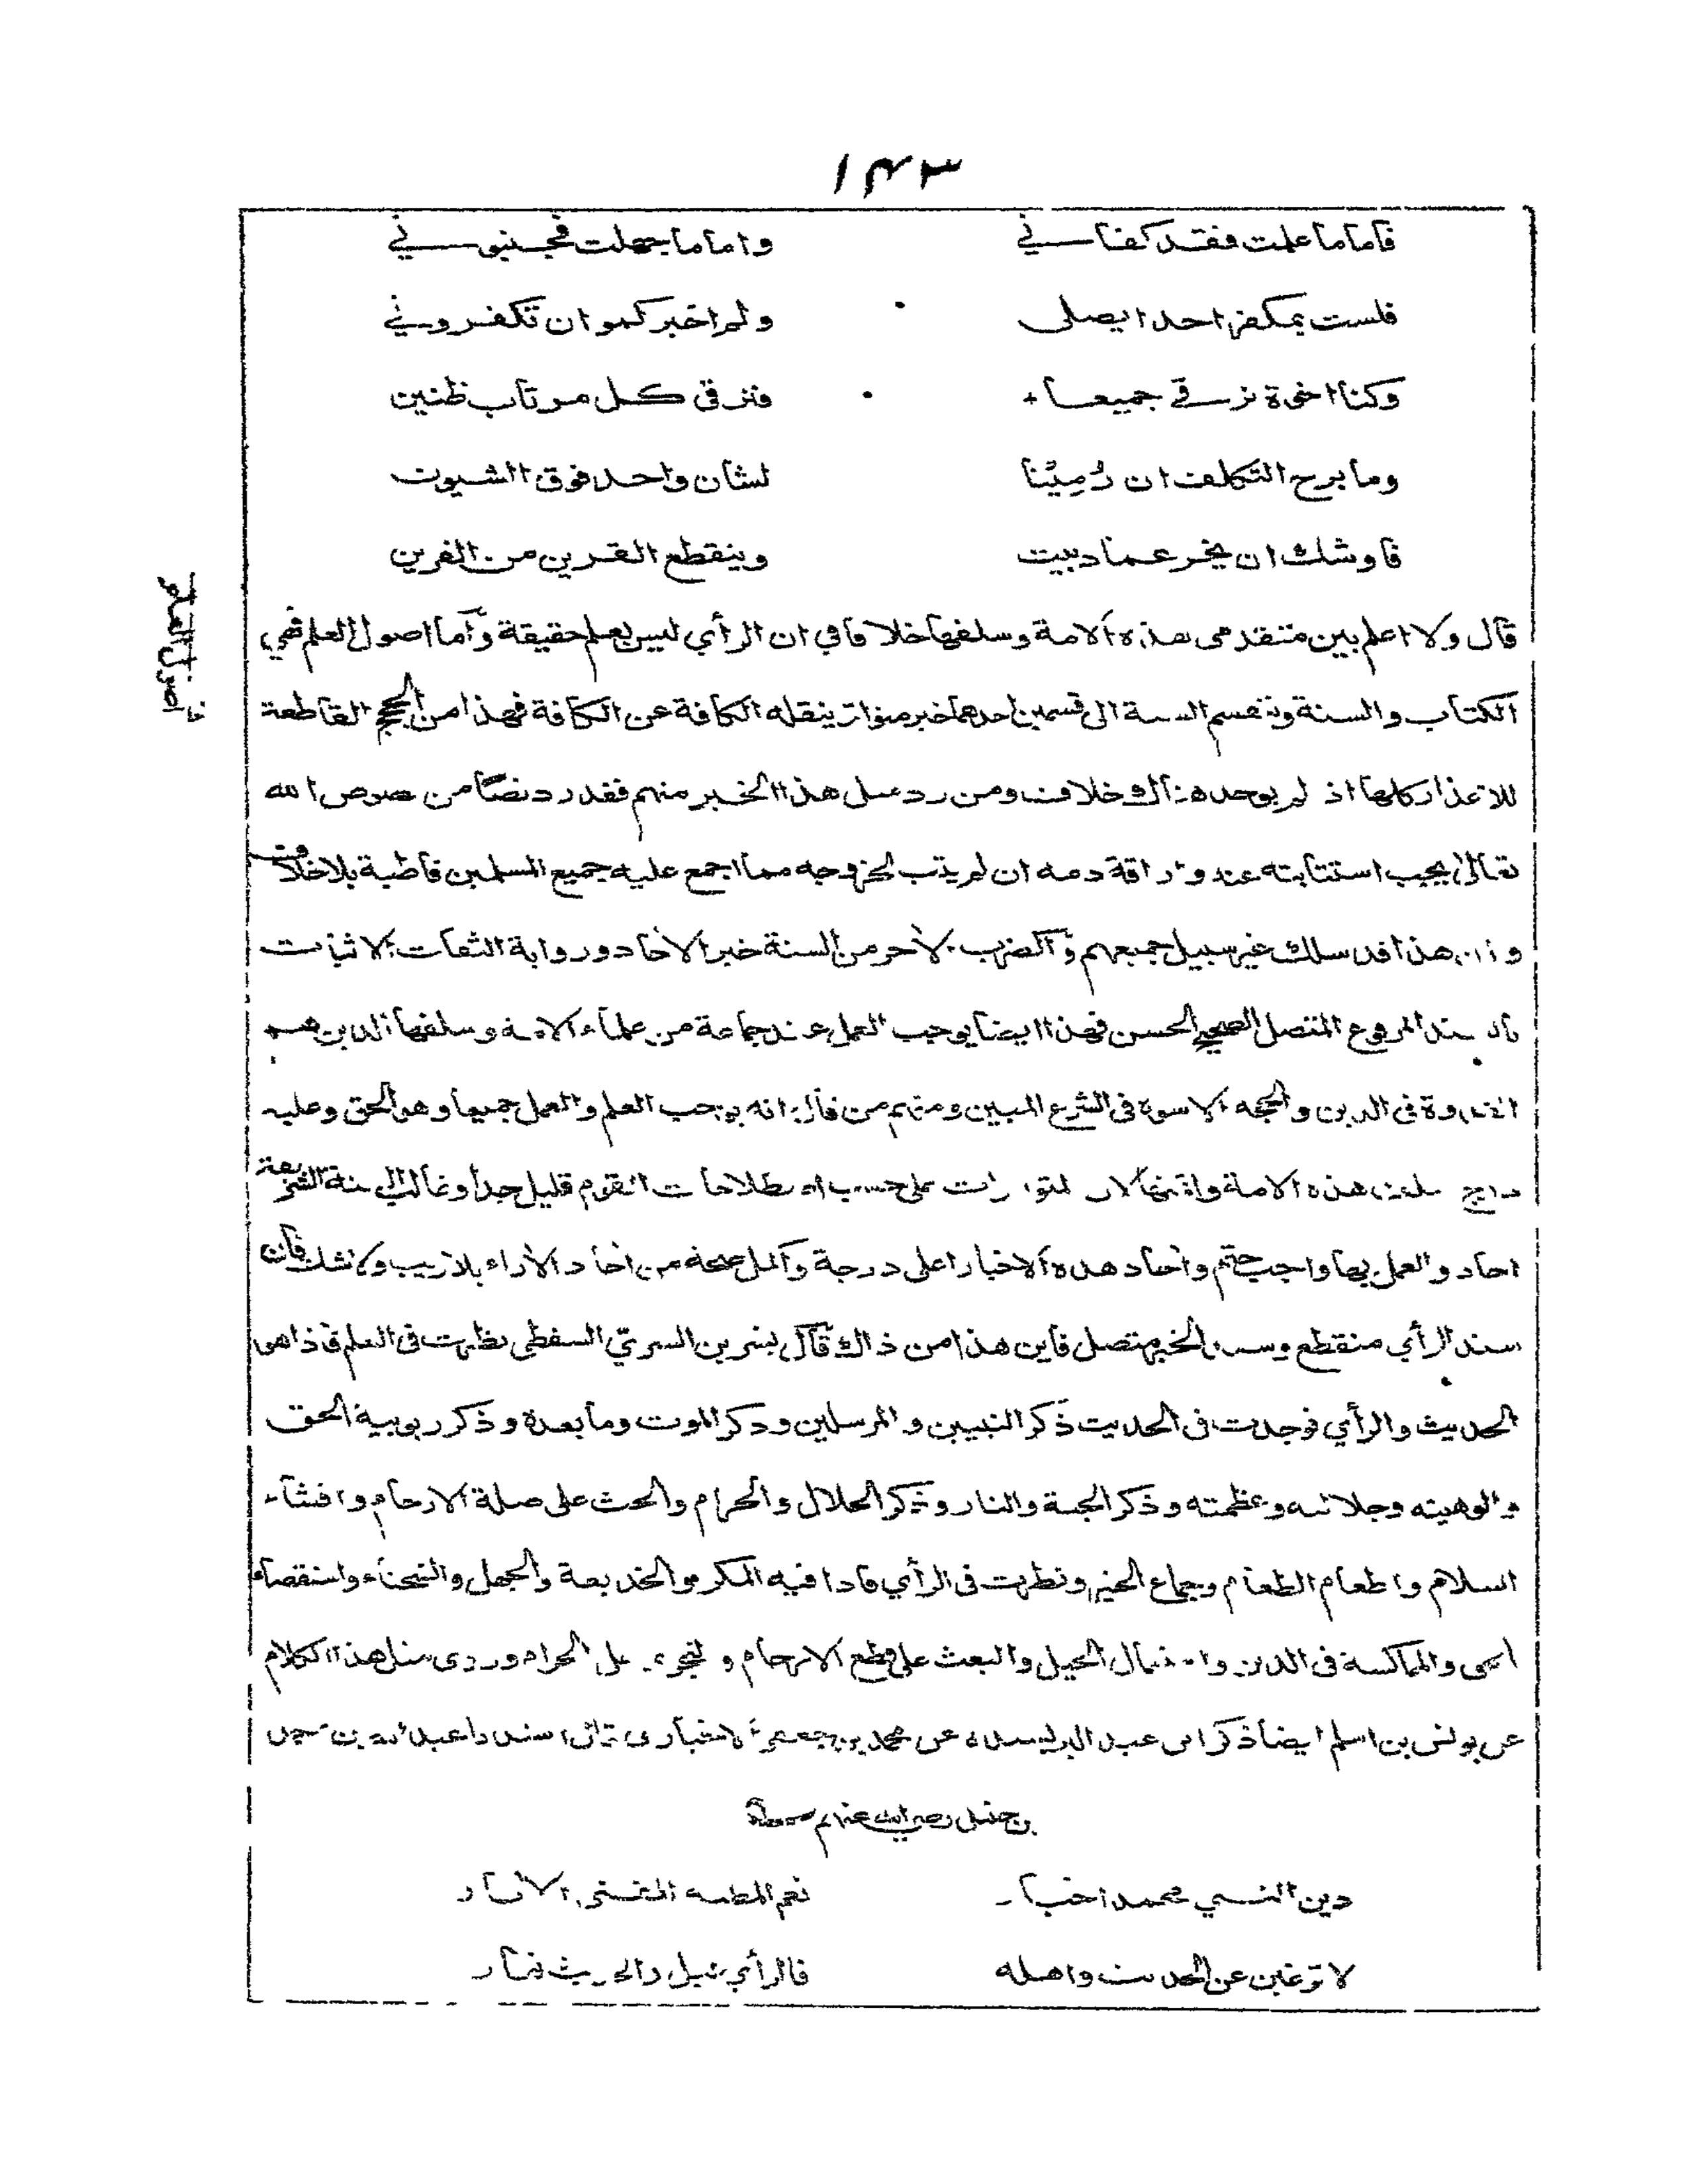 ١٤٣
فأما ما علمت فقد كفاني واما ما جهلت فجنبوني
فلست بمكفر احدا يصلى ولم اخبركمو ان تكفروني
وكنا اخوة نرقي جميعا فنرقى كل مرتاب ظنين
وما برح التكلف ان رُمِيْنا لشأن واحد فوق الشيون
فاوشك ان يخر عماد بيت وينقطع القرين من القرين
اصول العلم
قال ولا اعلم بين متقدمى هذه الامة وسلفها خلافا في ان الرأي ليس بعلم حقيقة وأما اصول العلم فهي
الكتاب والسنة وتنقسم السنة الى قسمين احدهما خبر متواتر ينقله الكافة عن الكافة فهذا من الحجج القاطعة
للاعذار كلها اذ لم يوجد هنالك خلاف ومن رد مثل هذا الخبر منهم فقد رد نصًا من نصوص الله
تعالى يجب استتابته عنه واراقة دمه ان لم يتب لخروجه مما اجمع عليه جميع المسلمين قاطبة بلا خلاف
وان هذا قد سلك غير سبيل جميعهم وَالضرب الآخر من السنة خبر الآحاد ورواية الثقات الاثبات
المرفوع المتصل الصحيح الحسن فهذا ايضا يوجب العمل عند جماعة من علماء الامة وسلفها الذين هم
القدوة في الدين والحجة الاسوة في الشرع المبين ومنهم من قال انه يوجب العلم والعمل جميعا وهو الحق وعليه
درج سلف هذه الامة وائمتها لان المتواترات على حسب اصطلاحات القوم قليل جدا وغالب السنة الشريعة
احاد والعمل بها واجب حتم واحاد هذه الاخبار اعلى درجة وأكمل صحة من احاد الآراء بلا ريب ولا شك فان
سند الرأي منقطع وسند الخبر متصل فأين هذا من ذالك قَال بشر بن السريّ السقطي نظرت في العلم فاذا هى
الحديث والرأي فوجدت في الحديث ذكر النبيين والمرسلين وذكر الموت وما بعده وذكر ربوبية الحق
والوهيته وجلالته وعظمته وذكر الجنة والنار وذكر الحلال والحرام والحث على صلة الارحام وافشاء
السلام واطعام الطعام وجماع الخير ونظرت في الرأي فاذا فيه المكر والخديعة والجهل والشحناء واستقصاء
الحق والمماكسة في الدين واستعمال الحيل والبعث على قطع الارحام والتجرى على الحرام وروى مثل هذا الكلام
عن يونس بن اسلم ايضا ذكر ابن عبد البر بسنده عن محمد بن جعفر الاخبارى قال انشدنا عبد الله بن احمد
بن حنبل رضي الله عنه
دين النبي محمد اخبار نعم المطية للفتى الآثار
لا ترغبن عن الحديث واهله فالرأي ليل والحديث نهار